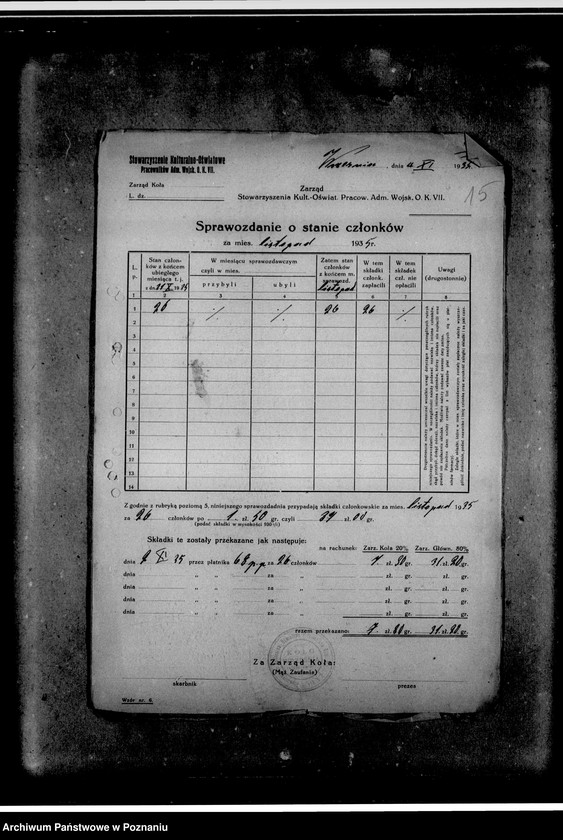 Stowarzyszenie Kulturalno-Oświatowe
Pracowników Adm. Wojsk. O. K. VII.
, dnia XI 193
Zarząd Koła
L. dz.
15
Zarząd
Stowarzyszenia Kult.-Oświat. Pracow. Adm. Wojsk. O. K. VII.
Sprawozdanie o stanie członków
za mies. listopad 1935 r.
L. p.
Stan członków z końcem ubiegłego miesiąca t. j. z dn. 31 X 1935
W miesiącu sprawozdawczym czyli w mies.
przybyli
ubyli
Zatem stan członków z końcem m. sprawozd. listopad
W tem składki członk. zapłacili
W tem składek czł. nie opłacili
Uwagi (drugostonnie)
1 2 3 4 5 6 7 8
1 26 ·/· ·/· 26 26 ·/·
2
3
4
5
6
7
8
9
10
11
12
13
14
Zgodnie z rubryką poziomą 5, niniejszego sprawozdadnia przypadają składki członkowskie za mies. listopad 1935
za 26 członków po 1 zł. 50 gr. czyli 39 zł. 00 gr.
(podać składki w wysokości 100%)
Składki te zostały przekazane jak następuje:
na rachunek: Zarz. Koła 20% Zarz. Główn. 80%
dnia XI 35 przez płatnika 68 p.p. za 26 członków 7 zł. 80 gr. 31 zł. 20 gr.
dnia „ „ za „ zł. gr. zł. gr.
dnia „ „ za „ zł. gr. zł. gr.
dnia „ „ za „ zł. gr. zł. gr.
razem przekazano: 7 zł. 80 gr. 31 zł. 20 gr.
Za Zarząd Koła:
(Mąż Zaufania)
skarbnik
prezes
Wzór nr. 8.
Archiwum Państwowe w Poznaniu